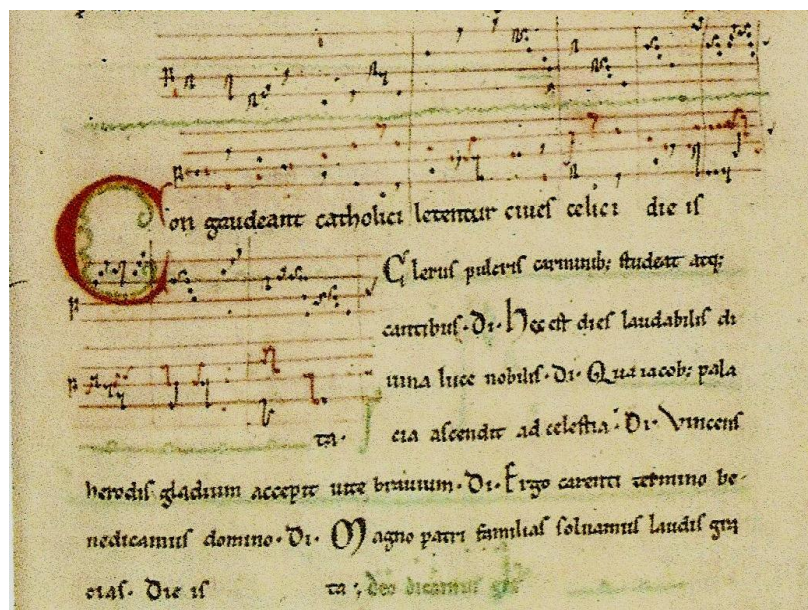 Congaudeant catholici letentur ciues celici die is
Clerus pulcris carminib; studeat atq;
cantibus· Di· Hec est dies laudabilis di
uina luce nobilis· Di· Qua iacob; pala
ta· cia ascendit ad celestia· Di· Vincens
herodis gladium accepit uite brauium· Di· Ergo carenti termino be
nedicamus domino· Di· Magno patri familias soluamus laudis gra
cias· Die is ta· deo dicamus